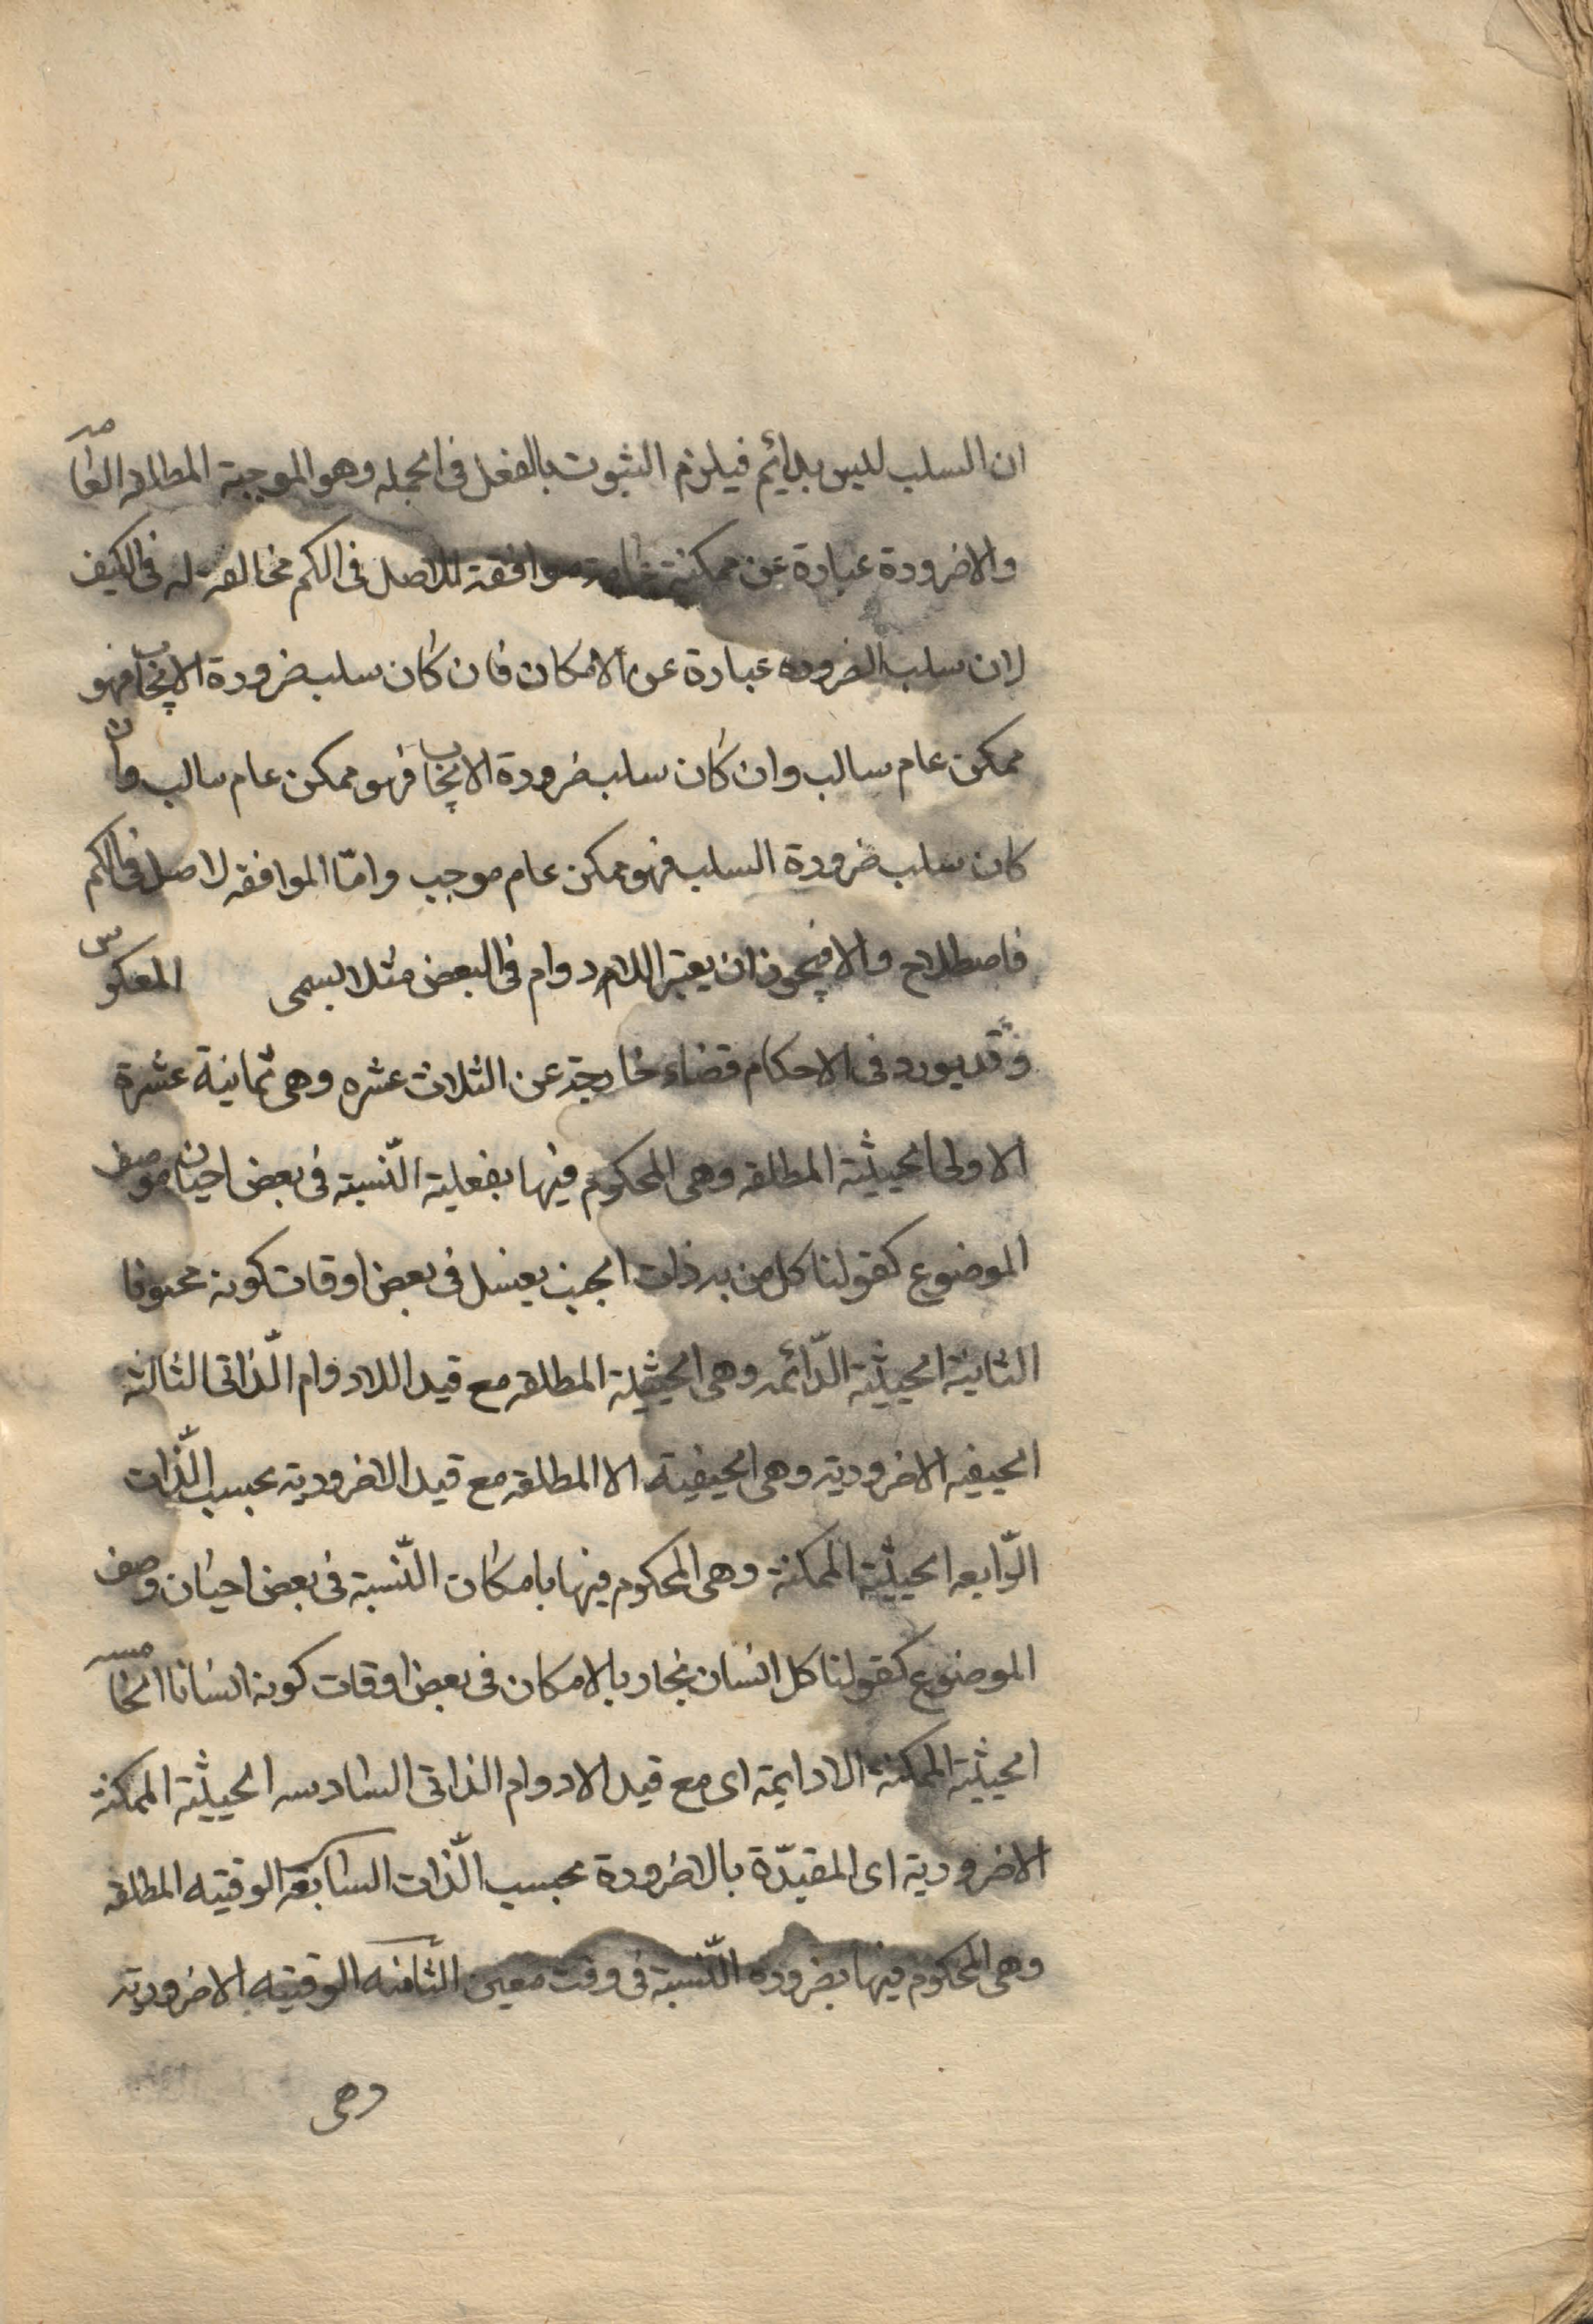 ان السلب ليس بدائم فيلزم الثبوت بالفعل فی الجمله وهو الموجبة المطلقه العامه
والاضرورة عبارة عن ممكنة عامة موافقة للاصل فی الكم مخالفة له فی الكيف
لان سلب الضروره عبارة عن الامكان فان كان سلب ضرورة الايجاب فهو
ممكن عام سالب وان كان سلب ضرورة الايجاب فهو ممكن عام سالب وان
كان سلب ضرورة السلب فهو ممكن عام موجب وامّا الموافقه لاصل فی الكم
فاصطلاح والا فيجوز ان يعتبر اللادوام فی البعض مثلا ليسمی المعكوس
وقد يورد فی الاحكام قضاء خارجة عن الثلاث عشره وهی ثمانية عشرة
الاولی الحيثية المطلقه وهی المحكوم فيها بفعلية النّسبة فی بعض احيان وصف
الموضوع كقولنا كل من به ذات الجنب يعسل فی بعض اوقات كونه مجنوبا
الثانية الحيثية الدّائمه وهی الحيثية المطلقه مع قيد اللادوام الذّاتی الثالثة
الحيفيه الاضرودية وهی الحيفية الا المطلقه مع قيد الاضرودية بحسب الذّات
الرّابعه الحيثية الممكنة وهی المحكوم فيها بامكان النّسبة فی بعض احيان وصف
الموضوع كقولنا كل انسان نجار بالامكان فی بعض اوقات كونه انسانا الخامسه
الحيثية الممكنة الادايمة ای مع قيد الادوام الذاتی السادسه الحيثية الممكنة
الاضرودية ای المقيدّة بالاضرودة بحسب الذّات السابعة الوقتيه المطلقه
وهی المحكوم فيها بضروده النّسبة فی وقت معين الثّامنه الوقتيه الاضرودية
وهی